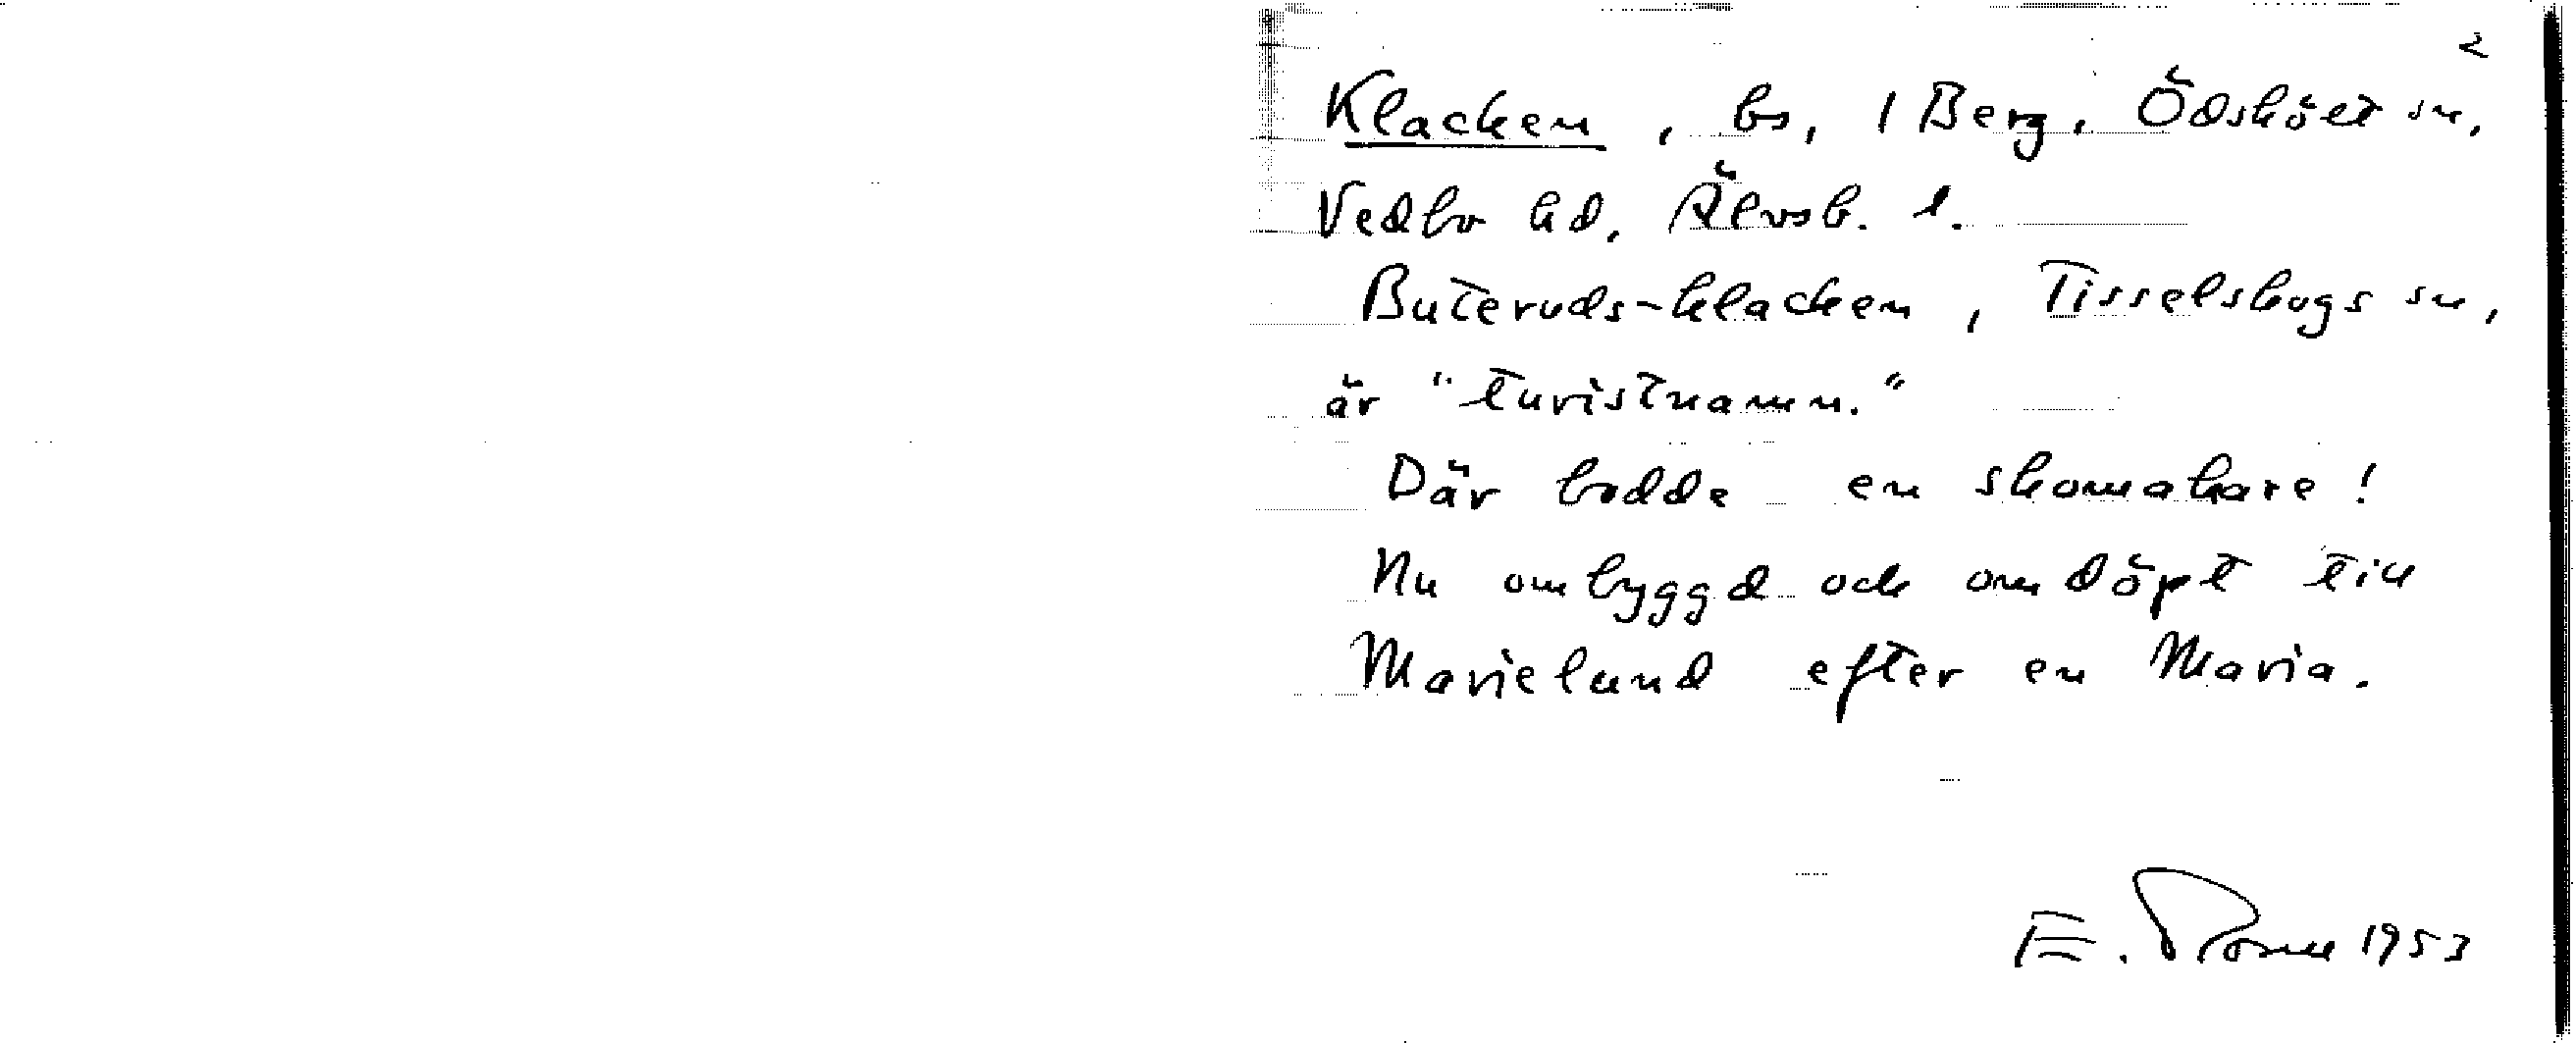 2
Klacken, bs, 1 Berg, Ödskölt sn,
Vedbo hd, Älvsb. l.
Buteruds-klacken, Tisselskogs sn,
är "turistnamn."
Där bodde en skomakare!
Nu ombyggd och omdöpt till
Marielund efter en Maria.
E. 1953